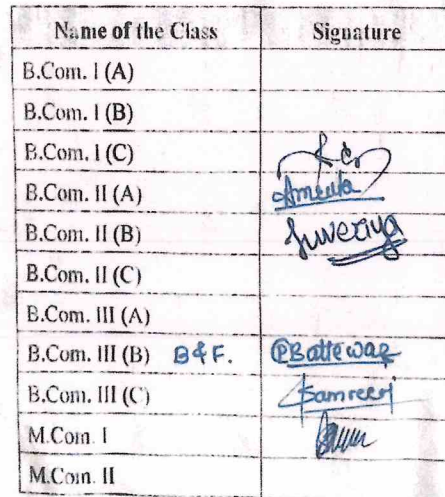 Name of the Class Signature
B.Com. I (A)
B.Com. I (B)
B.Com. I (C)
B.Com. II (A)
B.Com. II (B)
B.Com. II (C)
B.Com. III (A)
B.Com. III (B) B & F. PBattewar
B.Com. III (C) Samreen
M.Com. I
M.Com. II